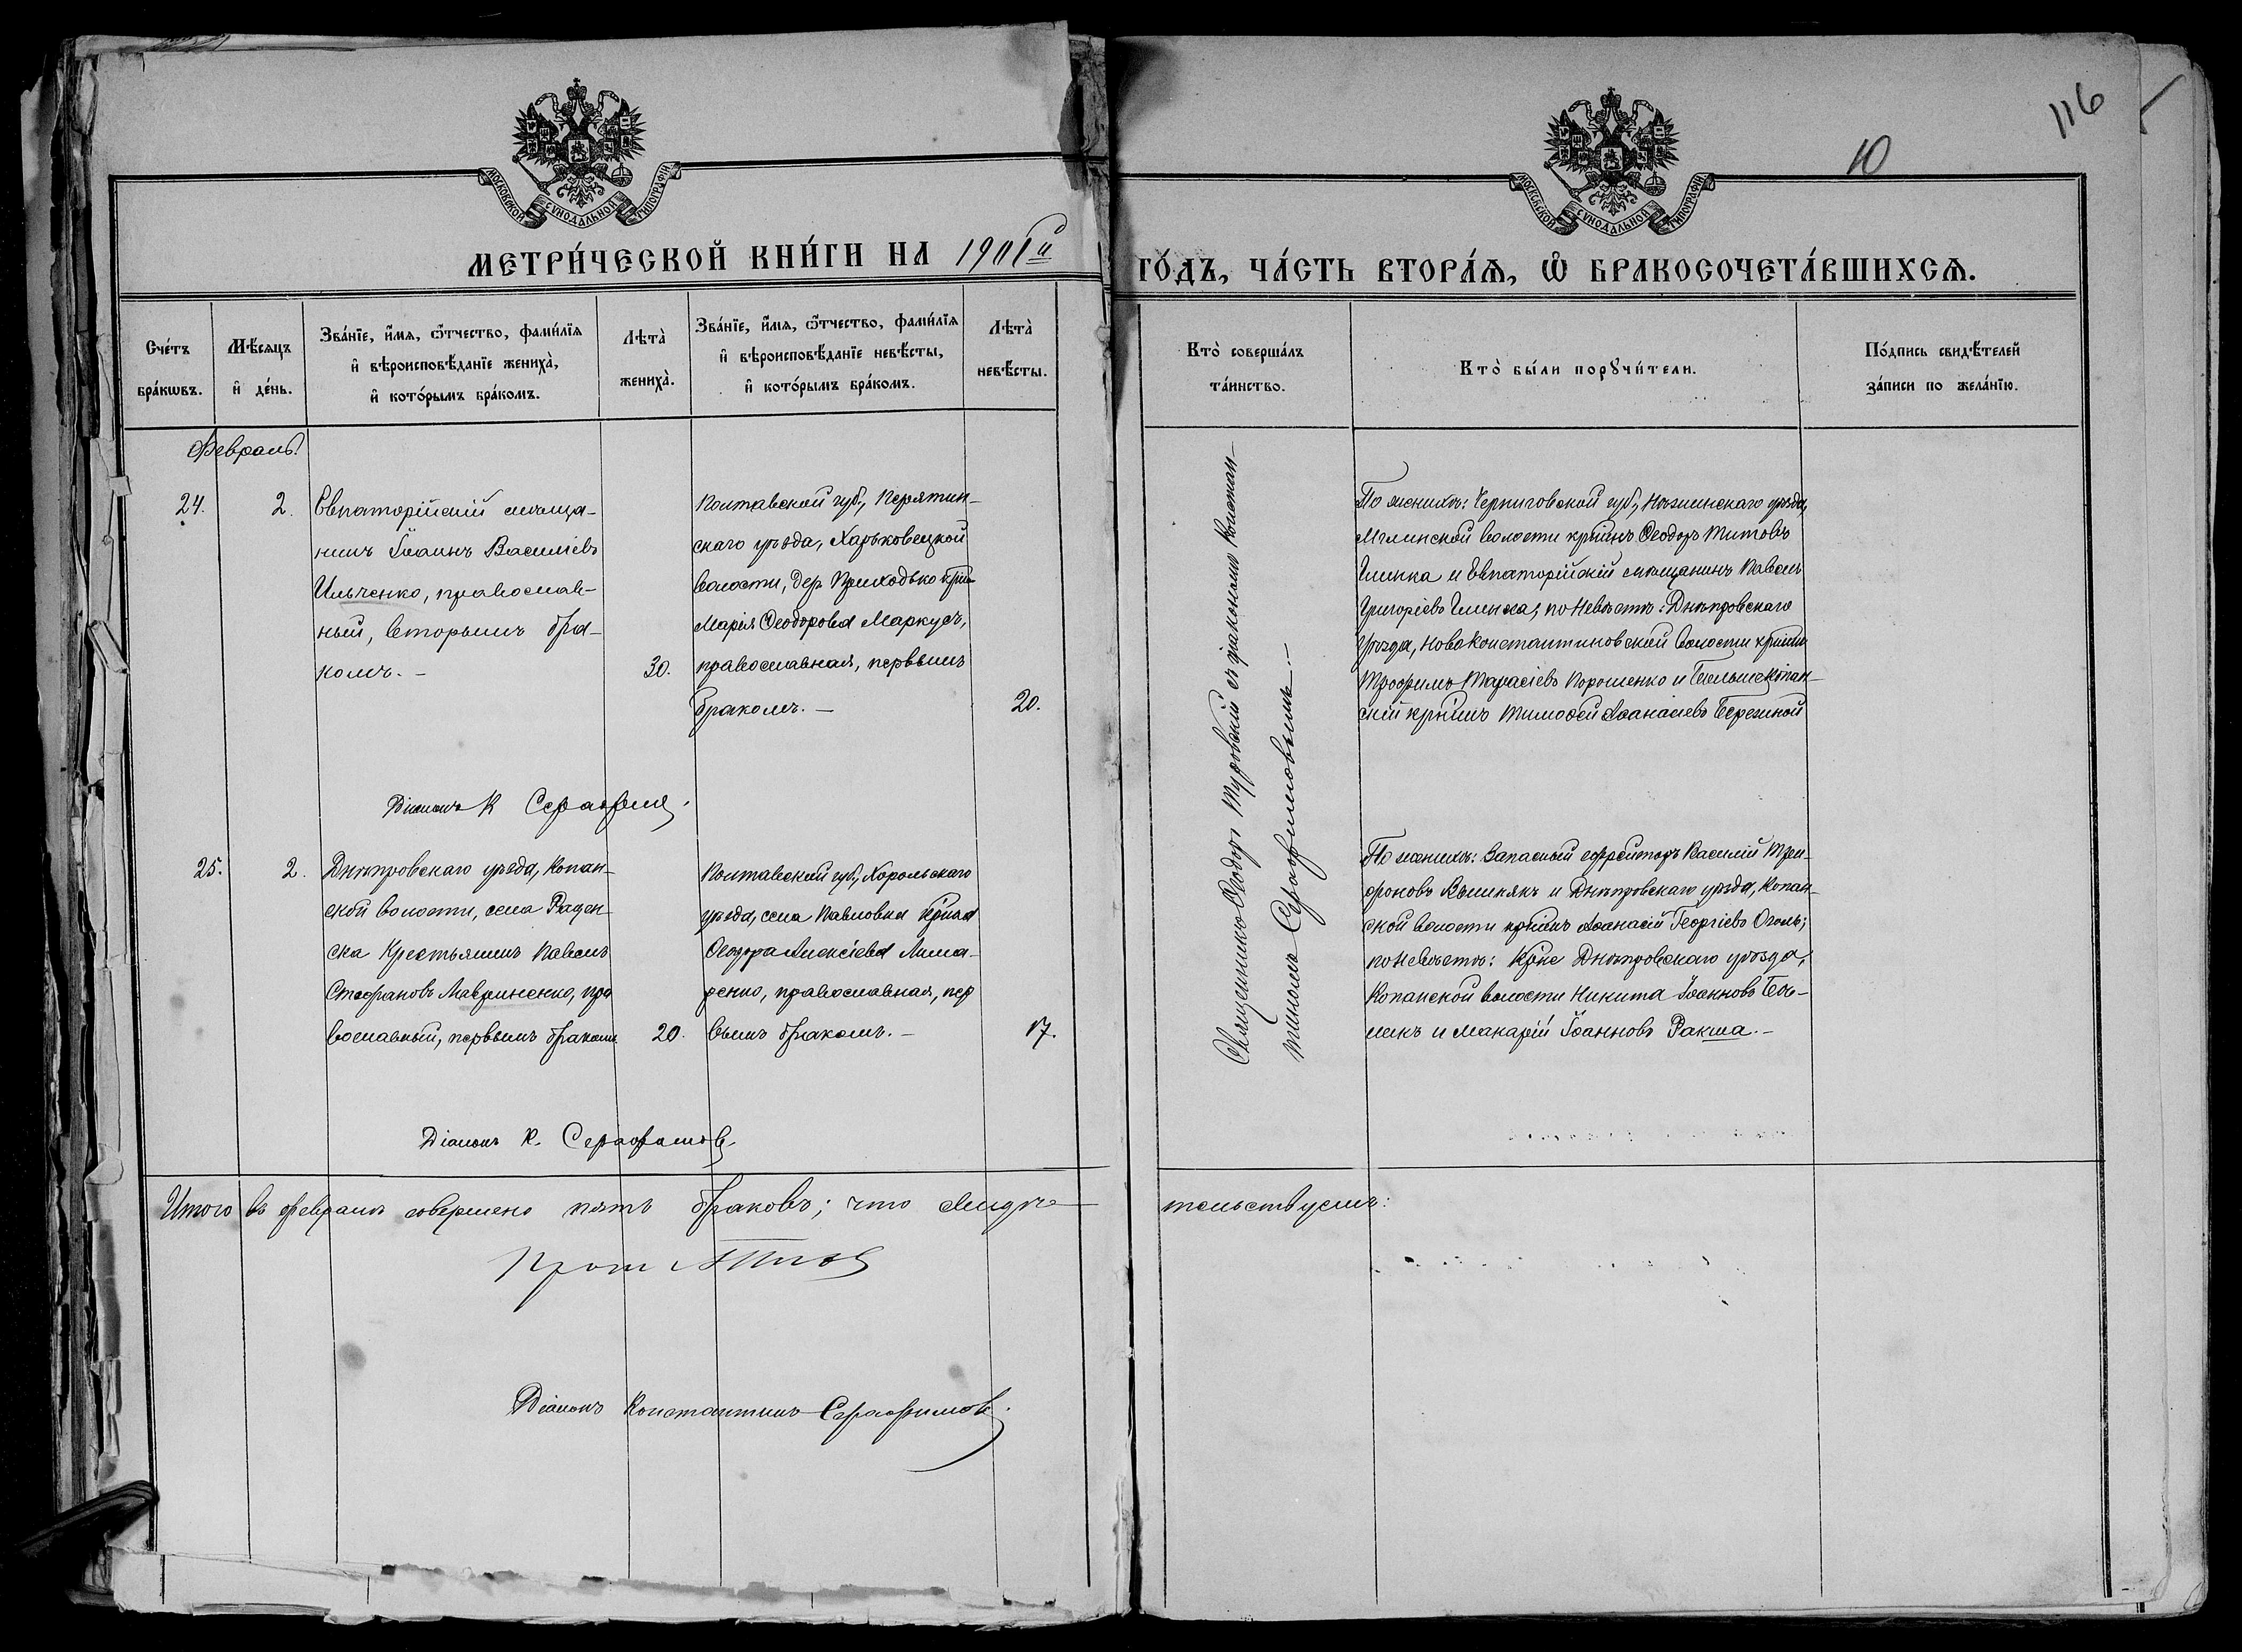 116
10
МОСКОВСКОЙ СУНОДАЛЬНОЙ ТИПОГРАФІИ
МОСКОВСКОЙ СУНОДАЛЬНОЙ ТИПОГРАФІИ
МЕТРИ́ЧЕСКОЙ КНИ́ГИ НА 1901й
ГО́ДЪ, ЧА́СТЬ ВТОРА́Ѧ, Ѿ БРАКОСОЧЕТА́ВШИХСѦ.
Сче́тъ
бра́кѡвъ.
Мѣ́сѧцъ
и҆ де́нь.
Зва́нїе, и҆́мѧ, ѻ҆́тчество, фами́лїѧ
и҆ вѣроисповѣ́данїе жениха̀,
и҆ кото́рымъ бра́комъ.
Лѣта̀
жениха̀.
Зва́нїе, и҆́мѧ, ѻ҆́тчество, фами́лїѧ
и҆ вѣроисповѣ́данїе невѣ́сты,
и҆ кото́рымъ бра́комъ.
Лѣта̀
невѣ́сты.
Кто̀ соверша́лъ
та́инство.
Кто̀ бы́ли порꙋчи́тели.
По́дпись свидѣ́телей
за́писи по жела́нїю.
Февраль
24.
2.
Евпаторійскій мѣща-
нинъ Іоаннъ Василіевъ
Ильченко, православ-
ный, вторымъ бра-
комъ. –
30.
Полтавской губ., Пирятин-
скаго уѣзда, Харьковецкой
волости, дер. Приходько крн
Марія Ѳеодорова Маркусъ,
православная, первымъ
бракомъ. –
20.
Священникъ Ѳеодоръ Туровскій съ діакономъ Констан-
тиномъ Серафимовымъ. –
По женихѣ: Черниговской губ., Нѣжинскаго уѣзда,
Мглинской волости крнинъ Ѳеодоръ Титовъ
Глинка и Евпаторійскій мѣщанинъ Павелъ
Григоріевъ Глинка; по невѣстѣ: Днѣпровскаго
уѣзда, Новоконстантиновской волости крнинъ
Трофимъ Тарасіевъ Порошенко и Большекопан-
скій крнинъ Тимоѳей Аѳанасіевъ Березиной
Діаконъ К Серафимов
25.
2.
Днѣпровскаго уѣзда, Копан-
ской волости, села Раден-
ска крестьянинъ Павелъ
Стефановъ Мавриненко, пра
вославный, первымъ бракомъ
20.
Полтавской губ., Хорольскаго
уѣзда, села Павловки крнка
Ѳеодора Алексіева Лима-
ренко, православная, пер
вымъ бракомъ. –
17.
По женихѣ: Запасный ефрейторъ Василій Три-
фоновъ и Днѣпровскаго уѣзда, Копан-
ской волости крнинъ Аѳанасій Георгіевъ Оголь;
по невѣстѣ: крне Днѣпровскаго уѣзда,
Копанской волости Никита Іоанновъ
и Макарій Іоанновъ Ракша. –
Діаконъ К. Серафимовъ.
Итого въ февралѣ совершено пять браковъ; что свидѣ-
тельствуемъ:
Прот
Діаконъ Константинъ Серафимовъ.